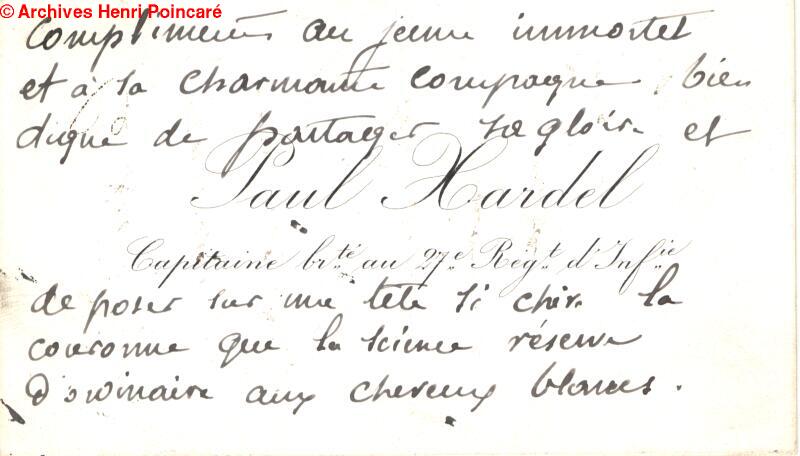 © Archives Henri Poincaré
Compliments au jeune immortel
et à sa charmante compagne, bien
digne de partager sa gloire et
Paul Hardel
Capitaine b.té au 27e Règt. d'Inf.ie
de poser sur une tête si chère la
couronne que la science réserve
d'ordinaire aux cheveux blancs.